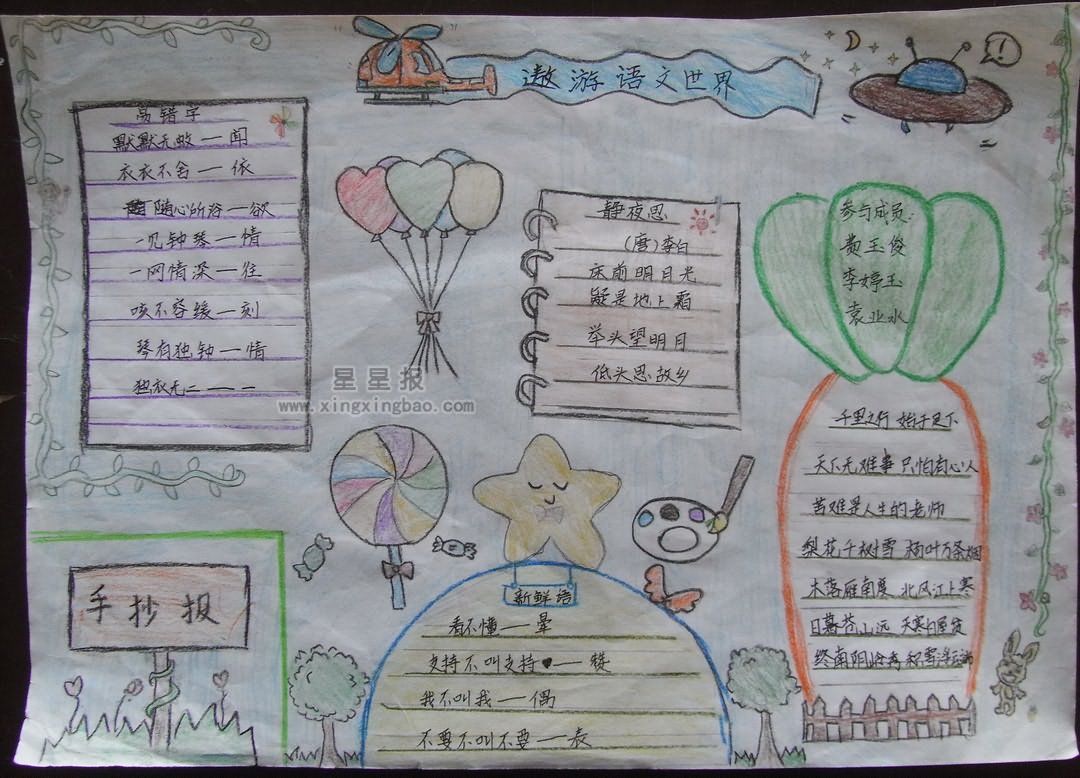 遨游语文世界
易错字
默默无蚊一闻
衣衣不舍一依
随心所浴一欲
一见钟琴一情
一网情深一往
咳不容缓一刻
琴有独钟一情
独衣无二一一
静夜思
(唐)李白
床前明月光
疑是地上霜
举头望明月
低头思故乡
参与成员:
黄玉俊
李婷玉
袁业水
千里之行 始于足下
天下无难事 只怕有心人
苦难是人生的老师
梨花千树雪 杨叶万条烟
木落雁南度 北风江上寒
日暮苍山远 天寒白屋贫
终南阴岭秀 积雪浮云端
星星报
www.xingxingbao.com
手抄报
新鲜语
看不懂一晕
支持不叫支持一
我不叫我一偶
不要不叫不要一表